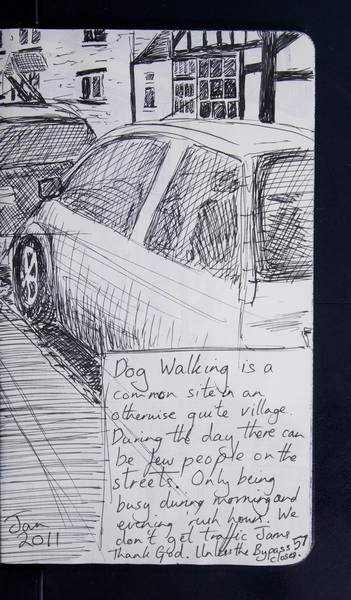 Dog Walking is a
common site in an
otherwise quite village.
During the day there can
be few people on the
streets. Only being
busy during morning and
evening rush hour. We
don't get traffic Jams
Thank God. Unless the Bypass
closes.
57
Jan
2011